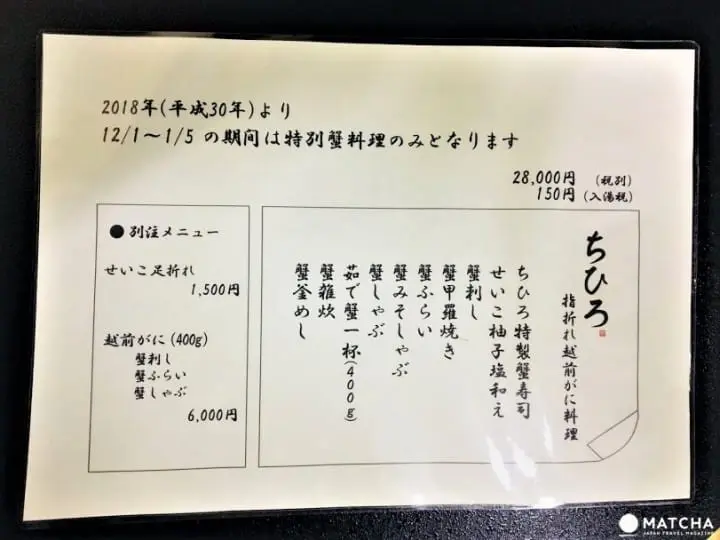 2018年(平成30年)より
12/1～1/5 の期間は特別蟹料理のみとなります
28,000円 (税別)
150円 (入湯税)
● 別注メニュー
せいこ足折れ
1,500円
越前がに (400g)
蟹刺し
蟹ふらい
蟹しゃぶ
6,000円
ちひろ
指折れ越前がに料理
ちひろ特製蟹寿司
せいこ柚子塩和え
蟹刺し
蟹甲羅焼き
蟹ふらい
蟹みそしゃぶ
蟹しゃぶ
茹で蟹一杯(400g)
蟹雑炊
蟹釜めし
MATCHA
JAPAN TRAVEL MAGAZINE